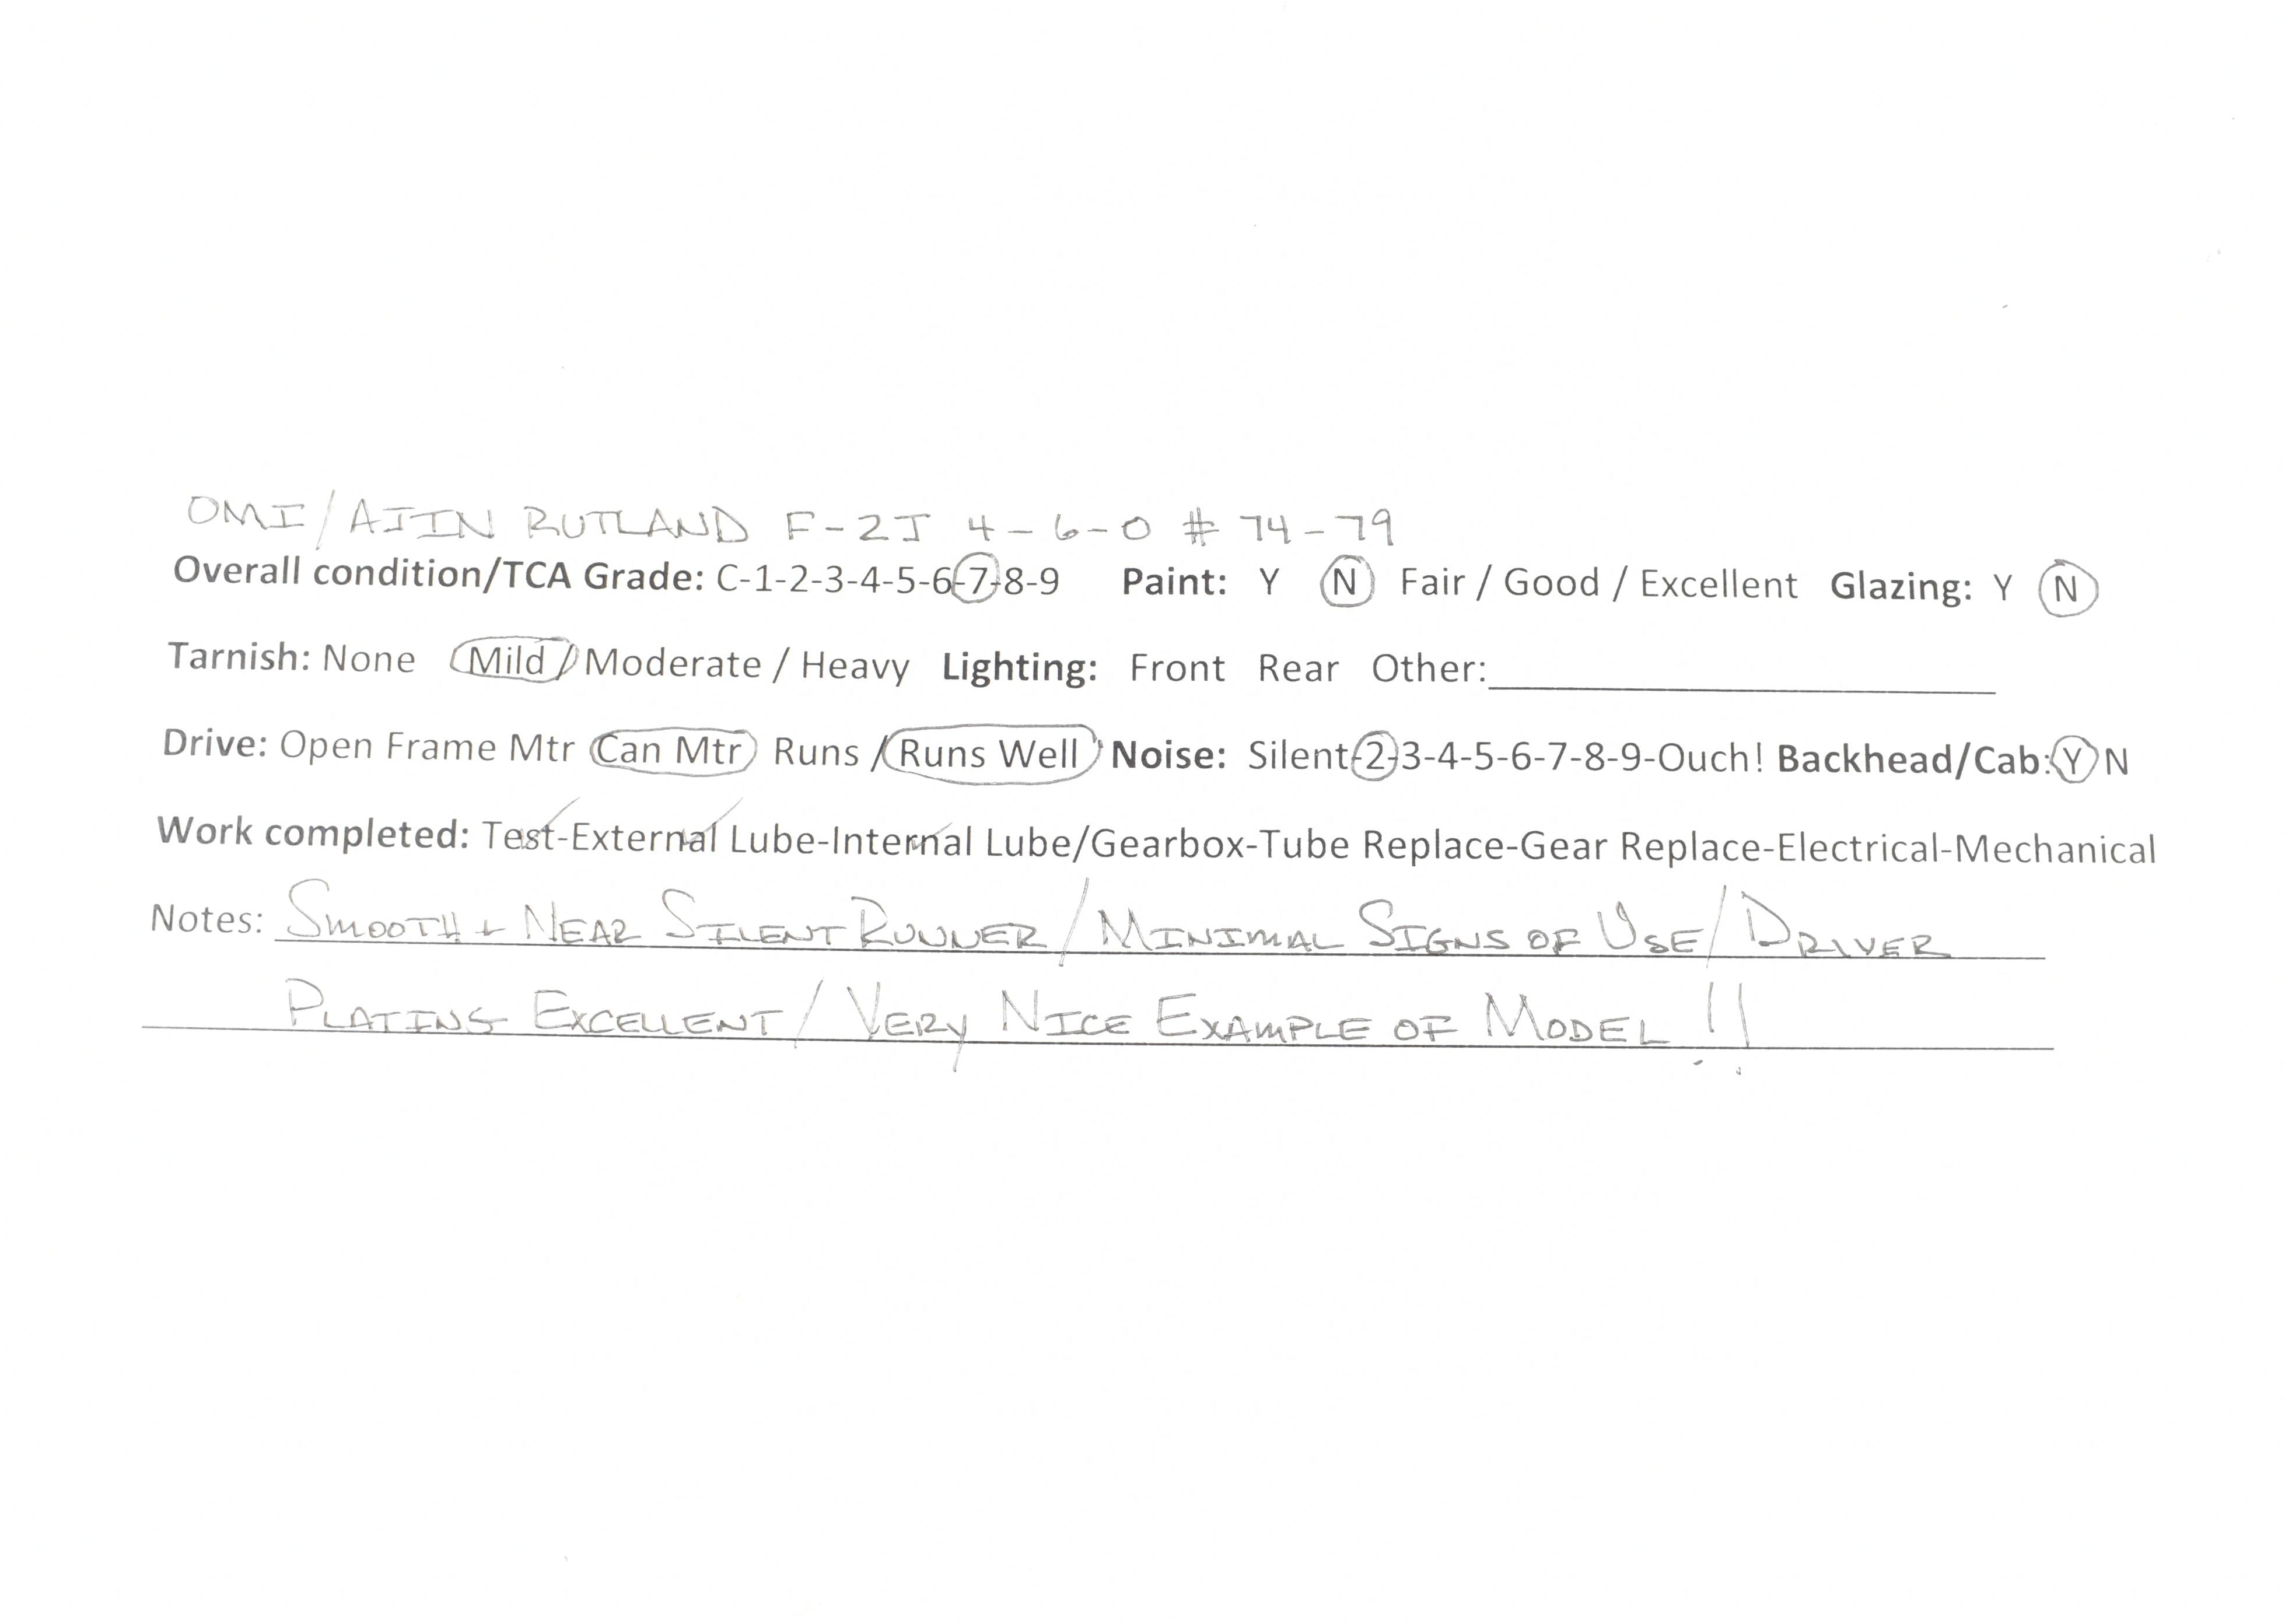 OMI/AJIN RUTLAND F-2J 4-6-0 # 74-79
Overall condition/TCA Grade: C-1-2-3-4-5-6-7-8-9 Paint: Y N Fair / Good / Excellent Glazing: Y N
Tarnish: None Mild / Moderate / Heavy Lighting: Front Rear Other:
Drive: Open Frame Mtr Can Mtr Runs / Runs Well Noise: Silent-2-3-4-5-6-7-8-9-Ouch! Backhead/Cab: Y N
Work completed: Test-External Lube-Internal Lube/Gearbox-Tube Replace-Gear Replace-Electrical-Mechanical
Notes: SMOOTH + NEAR SILENT RUNNER / MINIMAL SIGNS OF USE / DRIVER
PLATING EXCELLENT / VERY NICE EXAMPLE OF MODEL !!